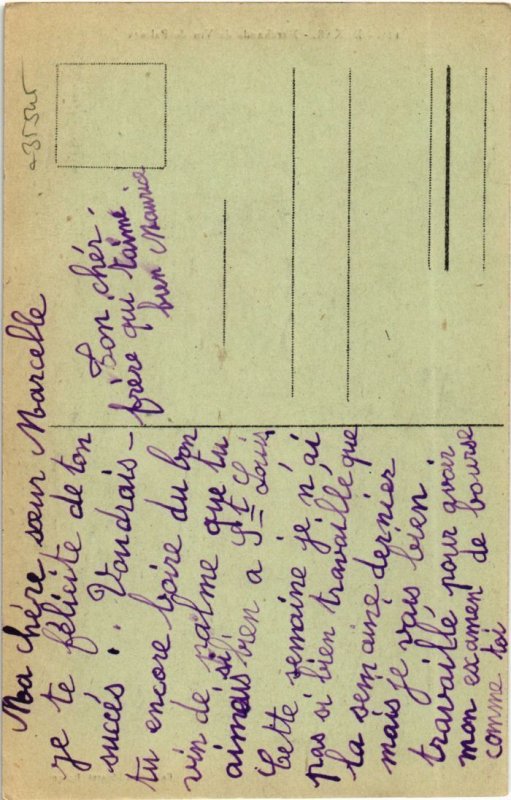 Ma chère sœur Marcelle
je te félicite de ton
succés. Voudrais-
tu encore boire du bon
vin de palme que tu
aimais si bien a St Louis
Cette semaine je n'ai
pas si bien travaillé que
la semaine dernier
mais je vais bien
travaillé pour avoir
mon examen de bourse
comme toi
Ton cher
frère qui t'aime
bien Maurice